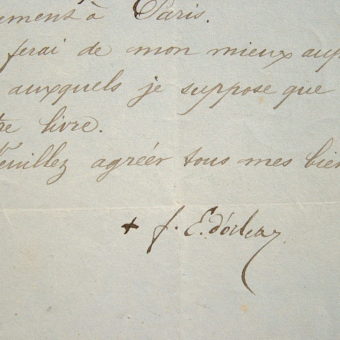 ement à Paris.
ferai de mon mieux au
auxquels je suppose que
re livre.
Veuillez agréer tous mes bien
+ f. E.